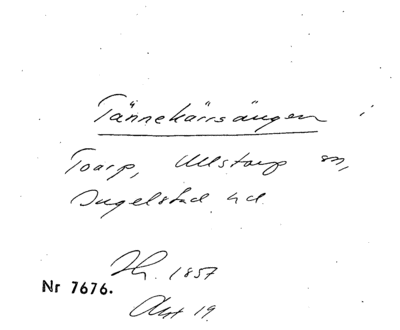 Tännekärrsängen i
Toarp, Ullstorp sn,
Ingelstad hd.
Hr. 1857
Nr 7676.
Akt 19.